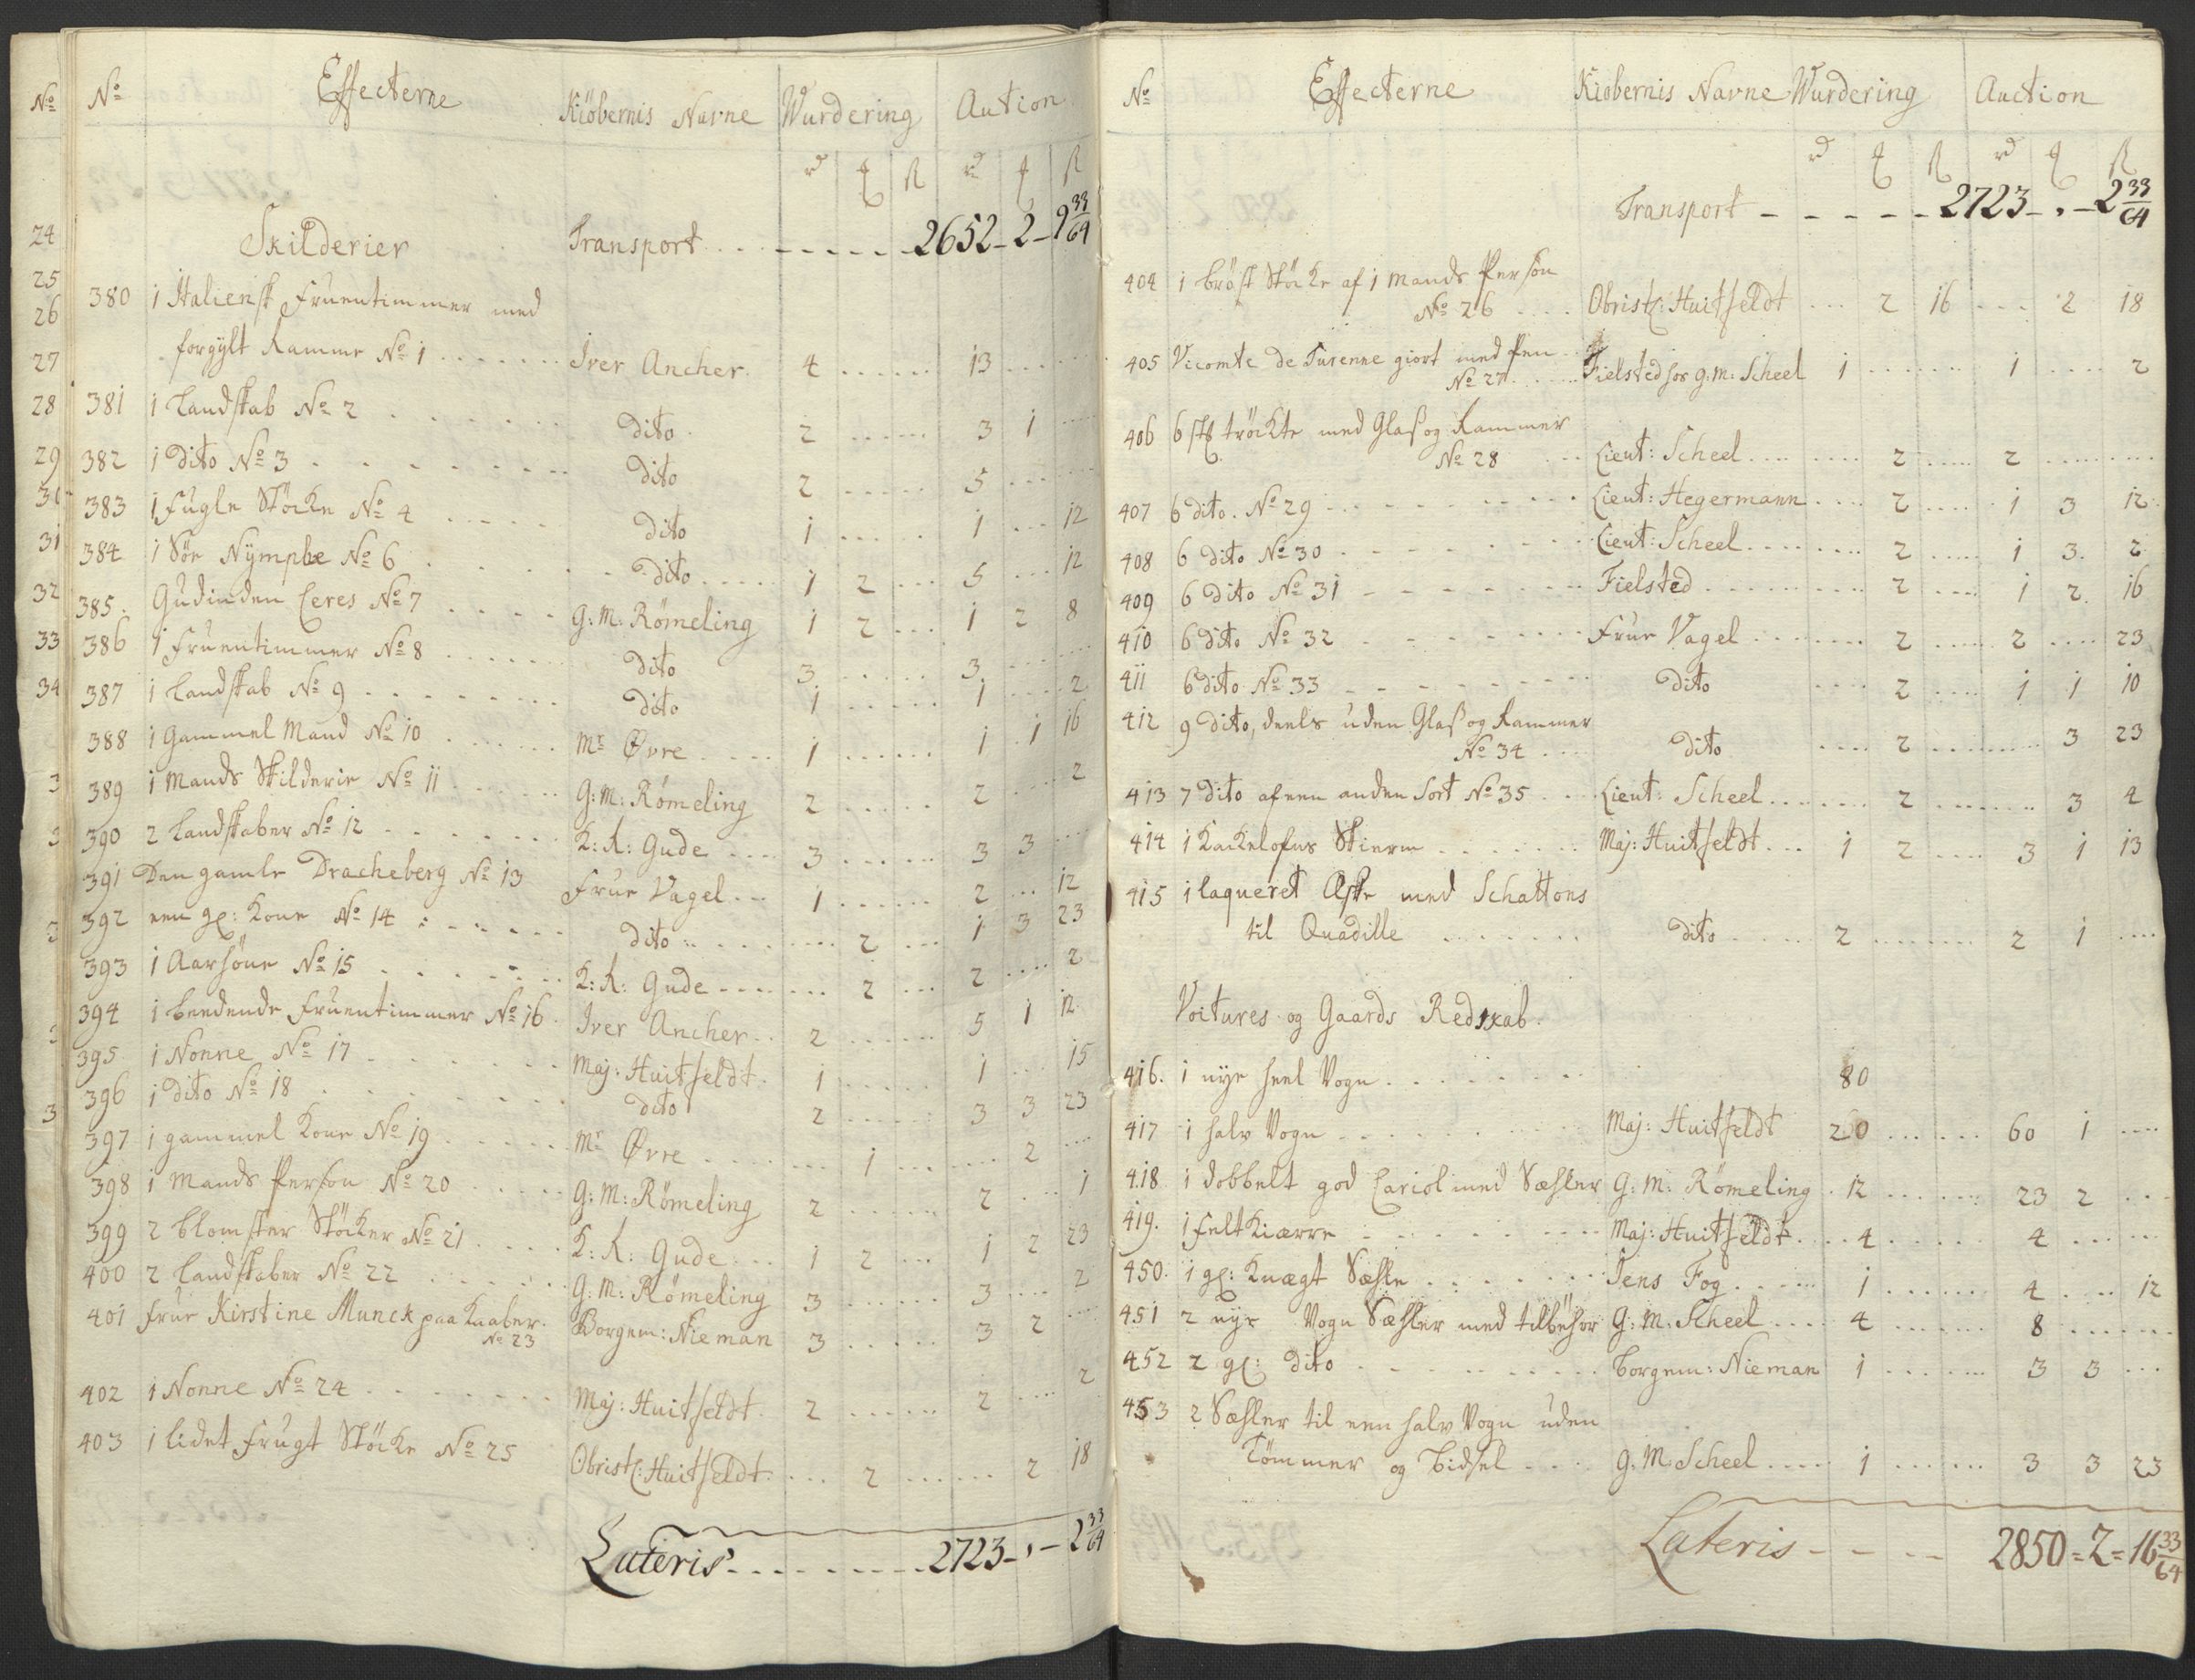 No
24
25
26
27
28
29
30
31
32
33
34
No Effecterne Kiöbernis Navne Wurdering Aution
rd ₰ ß rd ₰ ß
Skilderier Transport . . . - - - - - 2652 - 2 - 9 33/64
380 1 Italiensk Fruentimmer med
forgylt Ramme No 1 . . . . Iver Ancher. 4 . . . . 13 . . . .
381 1 Landskab No 2 . . . . dito 2 . . . . 3 1 . . .
382 1 dito No 3 . . . . dito 2 . . . . 5 . . . .
383 1 Fugle Stöcke No 4 . . . . dito 1 . . . . 1 . . . 12
384 1 Söe Nymphe No 6 . . . . dito . . . . 1 2 . . . 5 . . . 12
385. Gudinden Ceres No 7 . . . . G: M: Römeling 1 2 . . . 1 2 8
386 1 Fruentimmer No 8 . . . . dito 3 . . . . 3 . . . .
387 1 Landskab No 9 . . . . dito 1 . . . . 1 . . . 2
388 1 Gammel Mand No 10 . . . . Mr Øvre . . . . 1 . . . . 1 1 16
389 1 Mands Skilderie No 11 . . . . G: M: Römeling 2 . . . . 2 . . . 2
390 2 Landskaber No 12 . . . . K: R: Gude . . . . 3 . . . . 3 3 . . .
391 Den gamle Dracheberg No 13 Frue Vagel . . . 1 . . . . 2 . . . 12
392 een gl: Kone No 14 . . . . dito . . . . 2 . . . 1 3 23
393 1 Aarhöne No 15 . . . . K: R: Gude . . . . 2 . . . 2 . . . 2
394 1 beedende Fruentimmer No 16. Iver Ancher . . 2 . . . . 5 1 12
395 1 Nonne No 17 . . . . Maj: Huitfeldt. 1 . . . . 1 . . . 15
396 1 dito No 18 . . . . dito 2 . . . . 3 3 23
397 1 gammel Kone No 19 . . . . Mr Øvre . . . . 1 . . . . 2 . . .
398 1 Mands Person No 20 . . . . G: M: Römeling 2 . . . . 2 . . . 1
399 2 Blomster Stöcker No 21 . . . . K: R: Gude . . . 1 2 . . . 1 2 23
400 2 Landskaber No 22 . . . . G: M: Römeling 3 . . . . 3 . . . 2
401 Frue Kirstine Munck paa Kaaber.
No 23 Borgem: Nieman 3 . . . . 3 2 . . .
402 1 Nonne No 24 . . . . Maj: Huitfeldt 2 . . . . 2 . . . 2
403 1 lidet Frugt Stöcke No 25 Obristl: Huitfeldt. . . . 2 . . . . 2 18
Lateris . . . . . 2723 - , - 2 33/64
No Effecterne Kiöbernis Navne Wurdering Auction
rd ₰ ß rd ₰ ß
Transport - - - - - 2723 - , - 2 33/64
404 1 Bröst Stöcke af 1 Mands Person
No 26 . . . . Obristl: Huitfeldt . . . 2 16 . . . 2 18
405 Vicomte de Turenne giort med Pen
No 27 . . . . Fielsted hos G: M: Scheel 1 . . . . 1 . . . 2
406 6 stk tröckte med Glas og Rammer
No 28 . . . Lieut: Scheel . . . . 2 . . . 2 . . . .
407 6 dito. No 29 . . . . Lieut: Hegermann . . . . 2 . . . 1 3 12
408 6 dito No 30 . . . . Lieut: Scheel . . . . 2 . . . 1 3. 2
409 6 dito No 31 . . . . Fielsted . . . . 2 . . . 1 2. 16
410 6 dito No 32 . . . . Frue Vagel . . . . 2 . . . 2 . . . 23
411 6 dito No 33 . . . . dito . . . . 2 . . . 1 1 10
412 9 dito, deels uden Glas og Rammer
No 34 . . . . dito . . . . 2 . . . . 3 23
413 7 dito af een anden Sort No 35 . . . Lieut: Scheel . . . . 2 . . . . 3 4
414 1 Kackelofns Skierm . . . . Maj: Huitfeldt . . . 1 2 . . . 3 1 13
415 1 laqueret Æske med Schattons
til Quadille . . . . dito . . . . 2 . . . . 2 1 . . .
Voitures og Gaards Redskab.
416. 1 nye heel Vogn . . . . 80
417 1 halv Vogn . . . . Maj: Huitfeldt 260 . . . . 60 1 . . .
418 1 dobbelt god Cariol med Sæhler G: M: Römeling . 12 . . . . 23 2 . . .
419. 1 Felt Kiærre . . . . Maj: Huitfeldt . . . 4 . . . . 4 . . . .
450. 1 gl: Knægt Sæhle . . . . Jens Fog . . . . 1 . . . . 4 . . . 12
451 2 nye Vogn Sæhler med tilbehör G: M: Scheel . . . . 4 . . . . 8 . . . .
452 2 gl: dito . . . . Borgem: Nieman 1 . . . . 3 3 . . .
453 2 Sæhler til een halv Vogn uden
Tömmer og Bidsel . . . . G: M: Scheel . . . . 1 . . . . 3 3 23
Lateris - - - - 2850 = 2 = 16 33/64